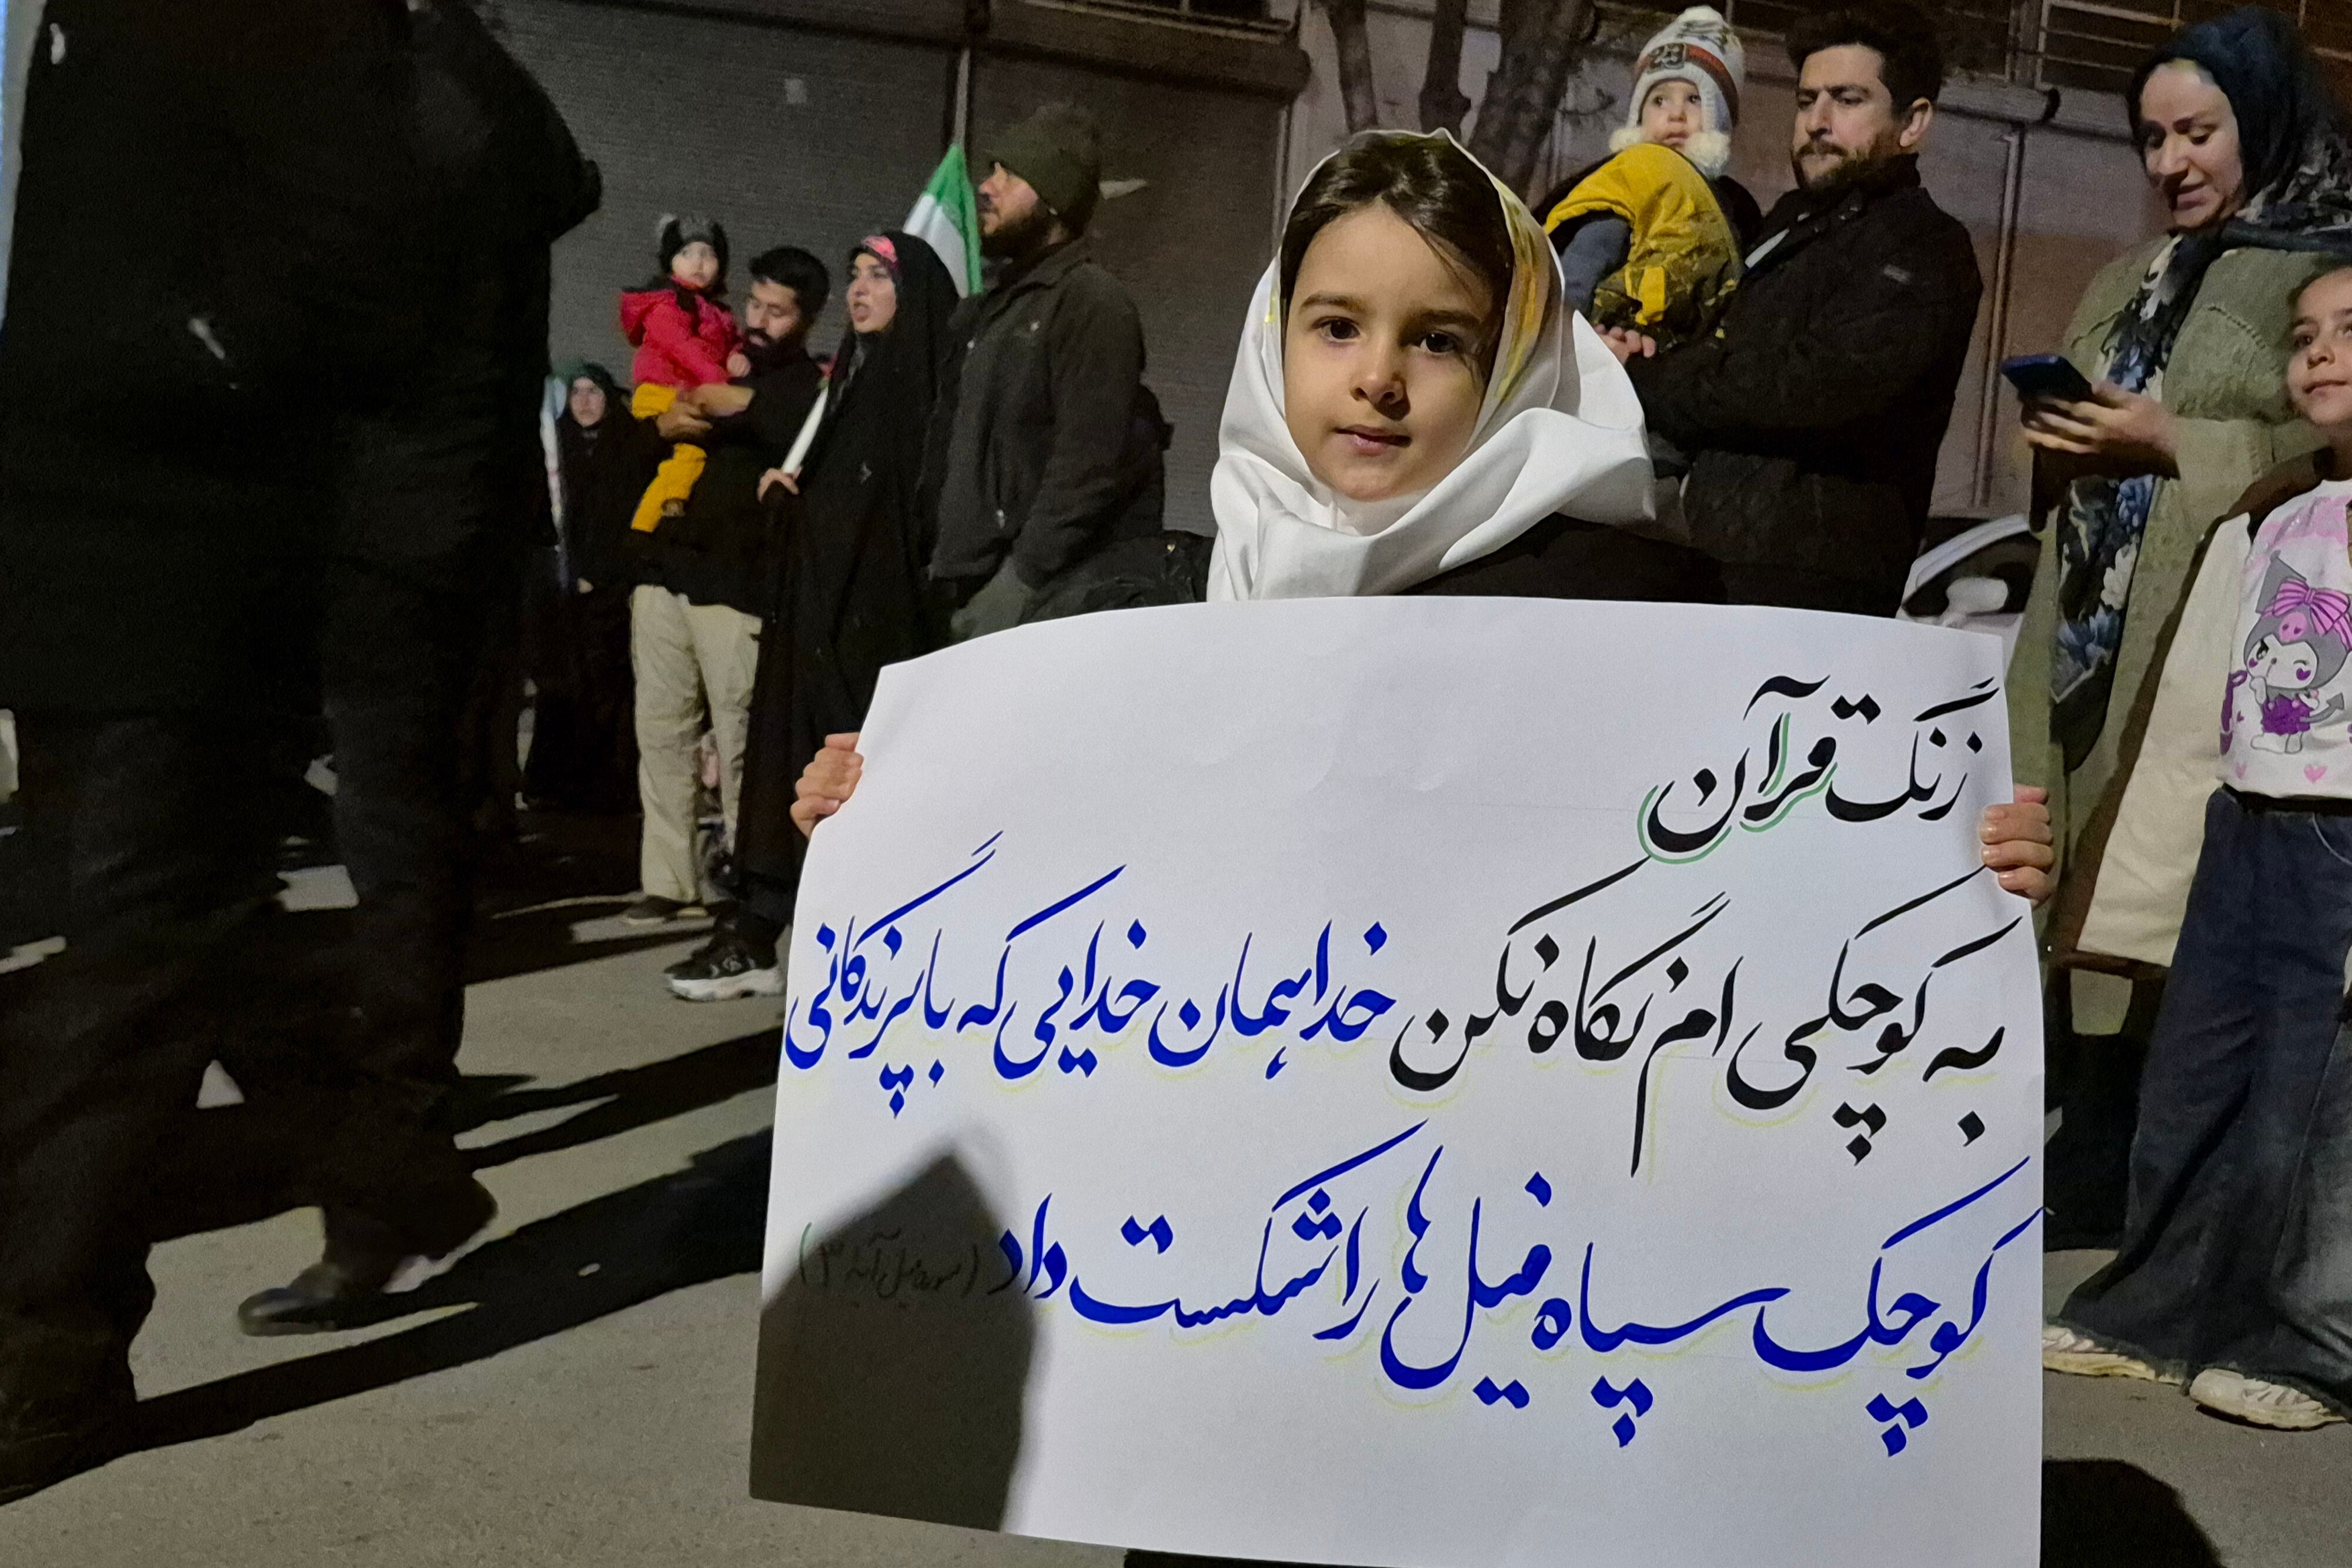 زنگ قرآن
به کوچکی ام نگاه نکن خدا همان خدایی که با پرندگانی
کوچک سپاه فیل ها را شکست داد (سوره فیل آیه ۳)